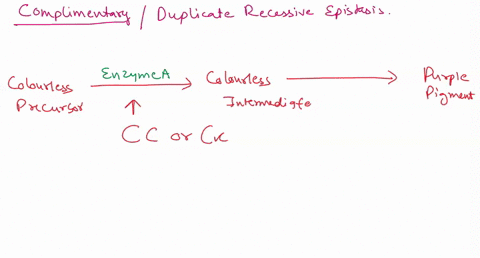 Complimentary / Duplicate Recessive Epistasis.
Colourless Precursor
Enzyme A
Colourless Intermediate
Purple Pigment
CC or Cc